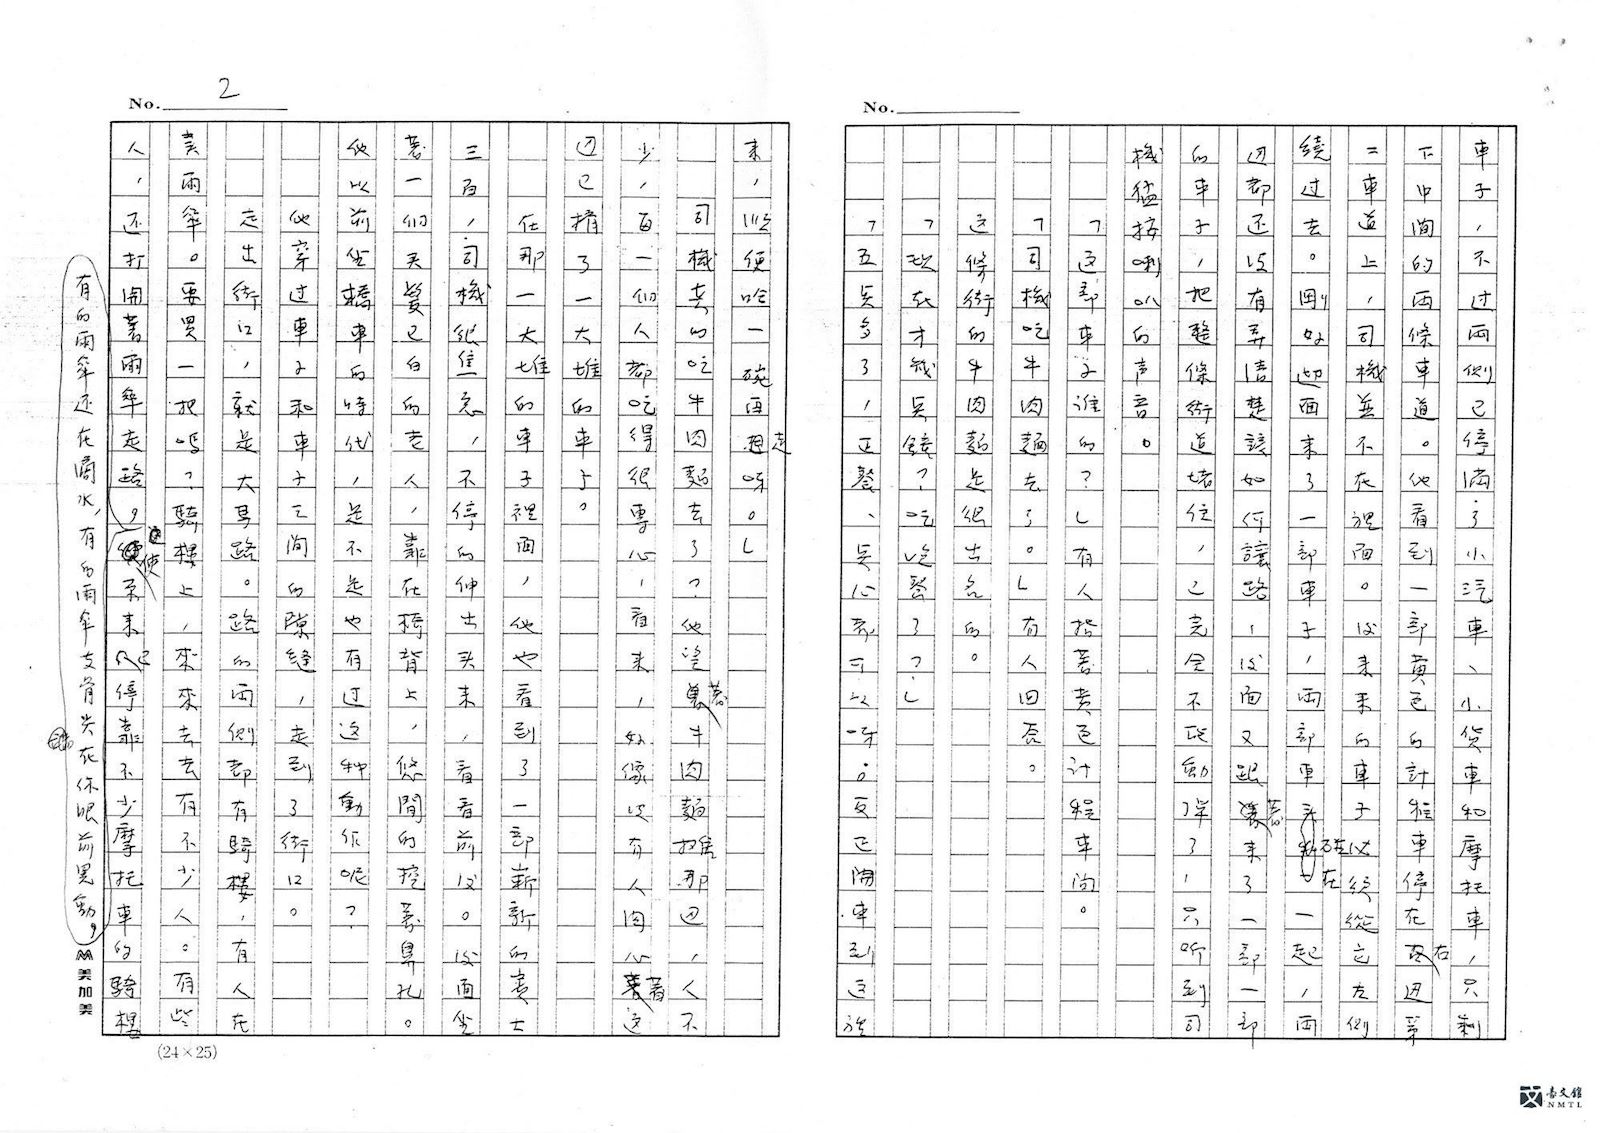 No.
車子，不过兩側已停滿了小汽車、小货車和摩托車，只剩
下中間的兩條車道。他看到一部黄色的計程車停在右边第
二車道上，司機並不在裡面。後来来的車子必從它左側
繞过去。剛好迎面来了一部車子，兩部車头碰在一起，兩
边都还没有弄清楚該如何讓路，後面又跟著来了一部一部
的車子，把整條街道堵住，已完全不能動彈了，只听到司
機猛按喇叭的声音。
「这部車子谁的？」有人指著黄色計程車问。
「司機吃牛肉麵去了。」有人回答。
这條街的牛肉麵是很出名的。
「現在才幾点鐘？吃晚餐了？」
「五点多了，正餐、点心都可以呀。反正開車到这
No. 2
来，順便吃一碗再走呀。」
司機真的吃牛肉麵去了？他望著牛肉麵攤那边，人不
少，每一個人都吃得很專心，看来，好像没有人肉心著这
边已擠了一大堆的車子。
在那一大堆的車子裡面，他也看到了一部嶄新的賓士
三百，司機很焦急，不停的伸出头来，看看前後。後面坐
著一個头髮已白的老人，靠在椅背上，悠閒的挖著鼻孔。
他以前坐轎車的時代，是不是也有过这种動作呢？
他穿过車子和車子之间的隙缝，走到了街口。
走出街口，就是大馬路。路的兩側都有騎樓，有人在
賣雨傘。要買一把嗎？騎樓上，來來去去有不少人。有些
人，还打開著雨傘走路，使原来已停靠不少摩托車的騎樓
有的雨傘还在滴水，有的雨傘支骨尖在你眼前晃動，
美加美
(24×25)
臺文館
NMTL